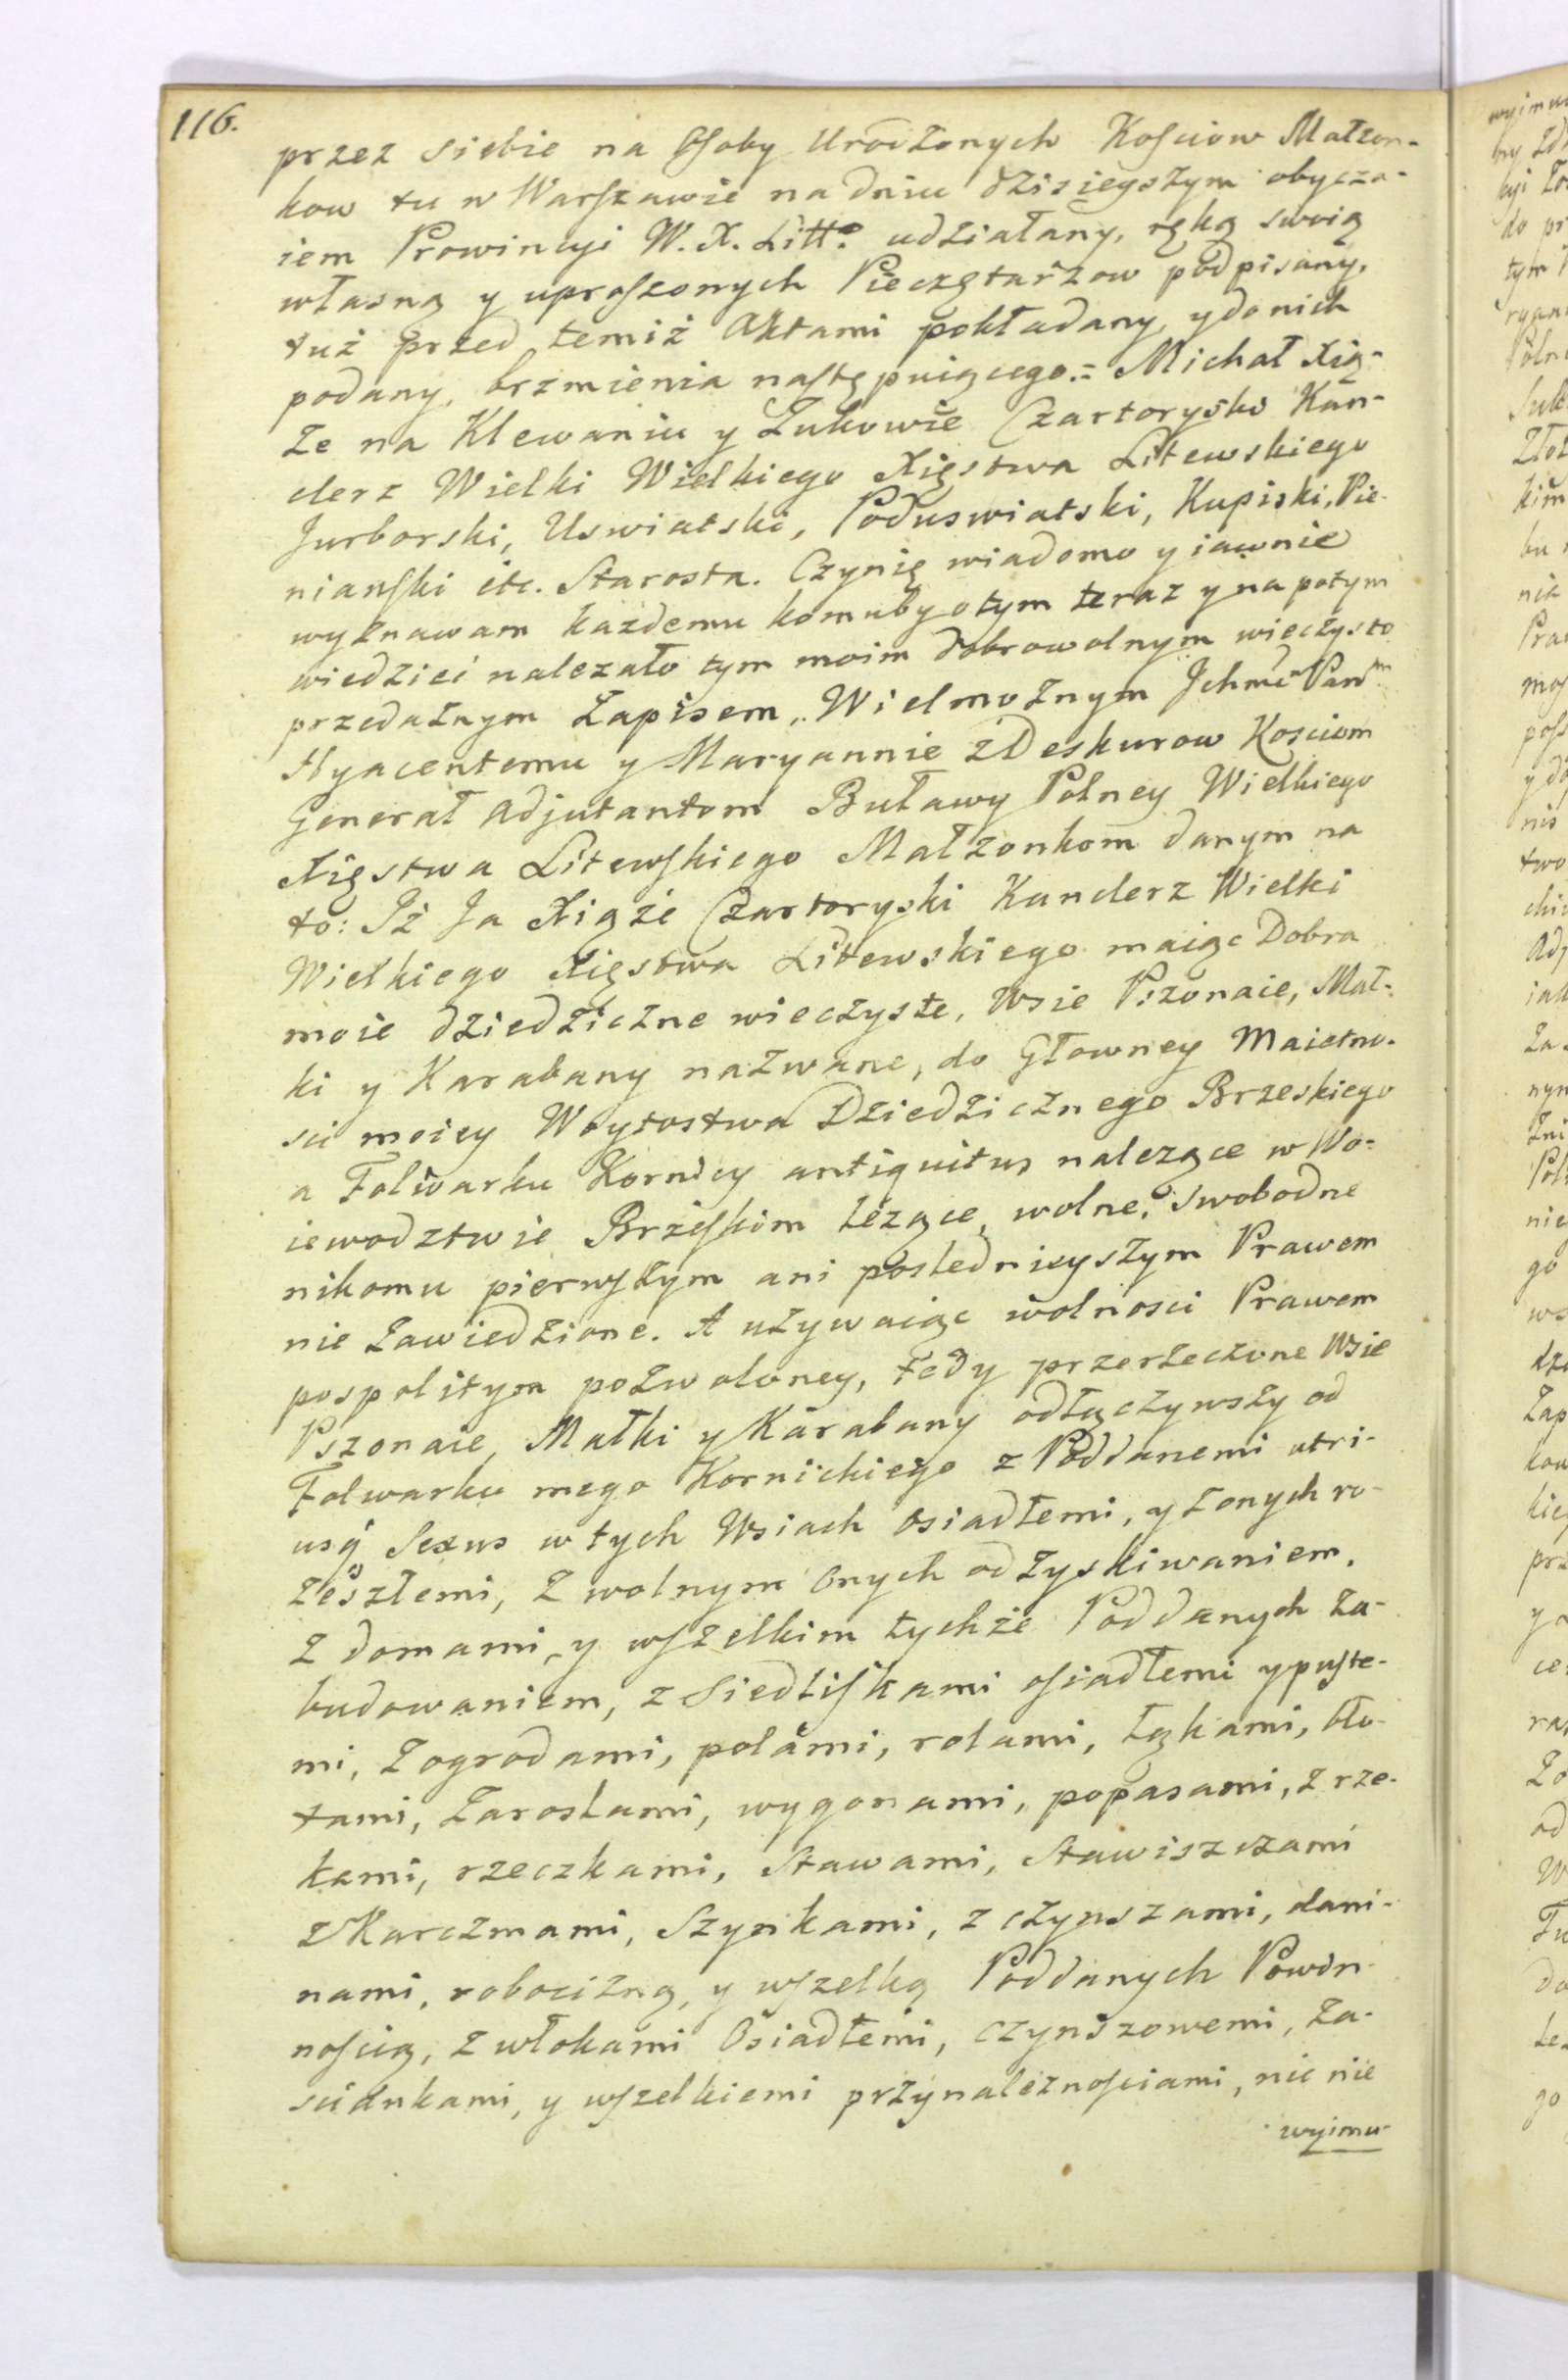 116.
przez siebie na Osoby Urodzonych Kosciow Małzon-
kow tu w Warszawie na dniu dzisieyszym obycza-
iem Prowincyi W. X. Litto udziałany, ręką swoią
własną y uproszonych Pieczętarzow podpisany,
tuż przed temiż Aktami pokładany, y do nich
podany, brzmienia następuiącego.= Michał Xią-
że na Klewaniu y Zukowie Czartoryski Kan-
clerz Wielki Wielkiego Xięstwa Litewskiego
Jurborski, Uswiatski, Poduswiatski, Kupiski, Pie-
nianski etc. Starosta. Czynię wiadomo y iawnie
wyznawam kazdemu komuby o tym teraz y na potym
wiedzieć nalezało tym moim dobrowolnym wieczysto
przedażnym Zapisem, Wielmożnym Ichmć Panm
Hyacentemu y Maryannie z Deskurow Kosciom
Generał Adjutantom Buławy Polney Wielkiego
Xięstwa Litewskiego Małżonkom danym na
to: Iż Ja Xiąże Czartoryski Kanclerz Wielki
Wielkiego Xięstwa Litewskiego maiąc Dobra
moie dziedziczne wieczyste, Wsie Pszonaie, Mał-
ki y Karabany nazwane, do Głowney Maietno-
sci moiey Woytostwa Dziedzicznego Brzeskiego
a Folwarku Kornicy antiquitus nalezące w Wo-
iewodztwie Brzeskim leżące, wolne, swobodne
nikomu pierwszym ani posledniéyszym Prawem
nie zawiedzione. A używaiąc wolnosci Prawem
pospolitym pozwoloney, tedy przerzeczone Wsie
Pszonaie, Małki y Karabany odłączywszy od
Folwarku mego Kornickiego z Poddanemi utri-
usq Sexus w tych Wsiach Osiadłemi, y z onych ro-
zeszłemi, z wolnym Onych odzyskiwaniem,
z domami, y wszelkim tychże Poddanych Za-
budowaniem, z Siedliskami osiadłemi y puste-
mi, z ogrodami, polami, rolami, łąkami, bło-
tami, Zaroslami, wygonami, popasami, z rze-
kami, rzeczkami, Stawami, Stawiszczami
z Karczmami, Szynkami, z czynszami, dani-
nami, robocizną, y wszelką Poddanych Powin-
noscią, z włokami Osiadłemi, czynszowemi, Za-
sciankami, y wszelkiemi przynależnosciami, nic nie
wyimu-